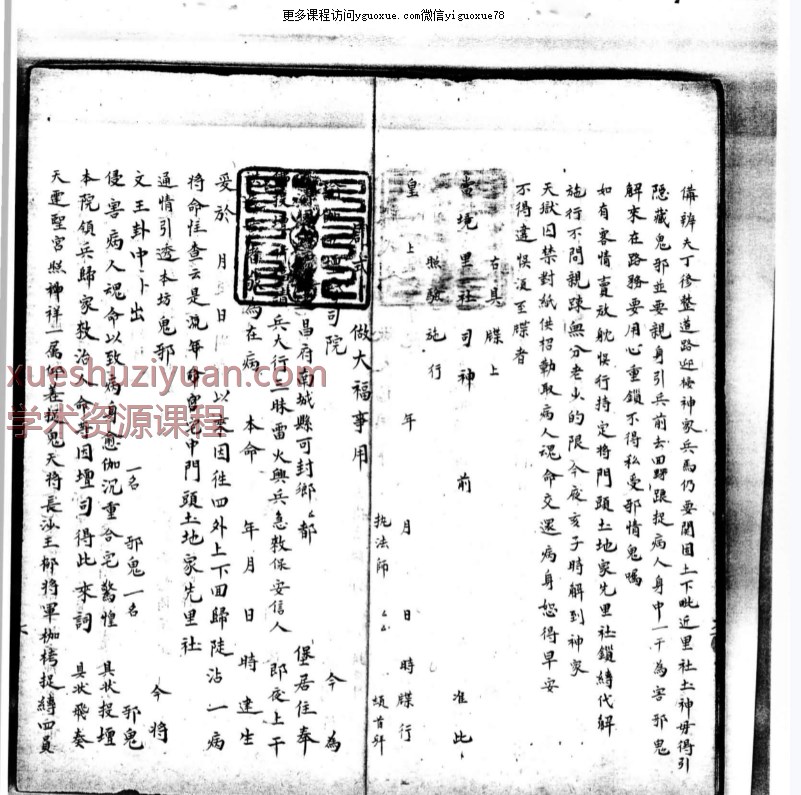 更多课程访问yguoxue.com微信yiguoxue78
備辨夫丁修整道路迎接神家兵馬仍要関固上下毗近里社土神毋得引
隐藏鬼邪並要親身引兵前去四野跟捉病人身中一干為害邪鬼
解來在路務要用心重鎖不得私受邪情鬼囑
如有容情賣放躭悮行持定将門頭土地家先里社鎖縛代解
施行不問親踈無分老少的限今夜亥子時解到神家
天獄囚禁對紙供招動取病人魂命交還病身恕得早安
不得違悮須至牒者
右具 牒上
當境里社司神 前 准此
照驗施行
皇上 年 月 日 時牒行
执法師 頓首拜
做大福事用
司院 今為
昌府南城縣可封鄉 都 堡居住奉
兵大行三昧雷火興兵急救保安信人 即夜上干
為在病 本命 年 月 日 時建生
受於 月 日 以來因往四外上下回歸陡沾一病
将命恠查云是流年命宫犯中門頭土地家先里社
通情引透本坊鬼邪 今将
文王卦中卜出 一名 邪鬼一名 邪鬼
侵害病人魂命以致病身 沉重合宅驚惶 具状投壇
本院領兵歸家救治人命 因壇司得此來詞 具状飛奏
天 聖宫照 祥 捉鬼天将長沙王柳将軍枷栲捉縛四員
xueshuziyuan.com
学术资源课程